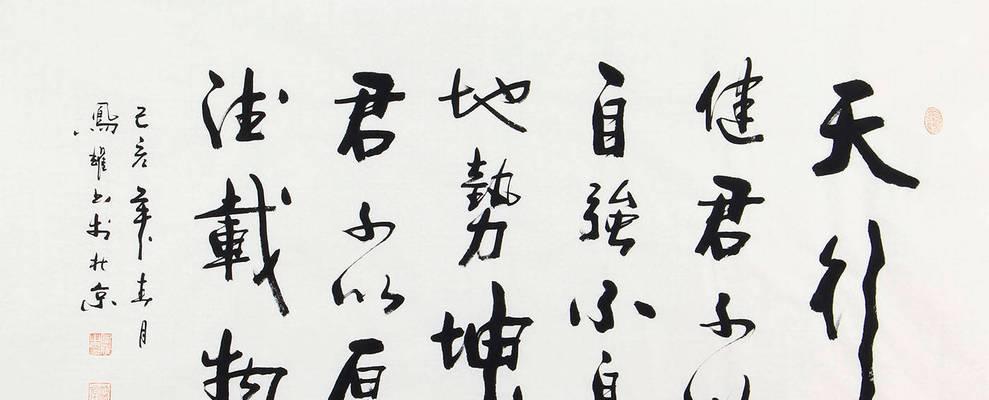 天行
健君子以
自強不息
地勢坤
君子以厚
德載物
己亥年春月
鳳耀书於北京